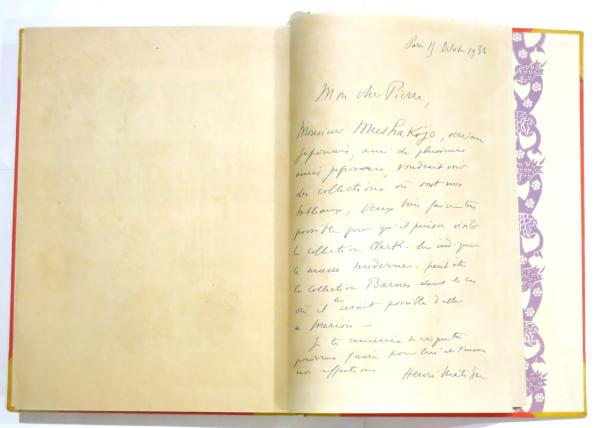 Paris 15 Octobre 1936
Mon cher Pierre,
Monsieur MushaKojo, écrivain
japonais, ami de plusieurs
amis japonais, voudrait voir
des collections où sont mes
tableaux, veux tu faire ton
possible pour qu'il puisse visiter
la collection Clark - lui indiquer
le musée moderne - peut être
la collection Barnes dans le cas
où il lui serait possible d'aller
à Merion -
Je te remercie de ce que tu
pourras faire pour lui et t'envoie
nos affections Henri Matisse